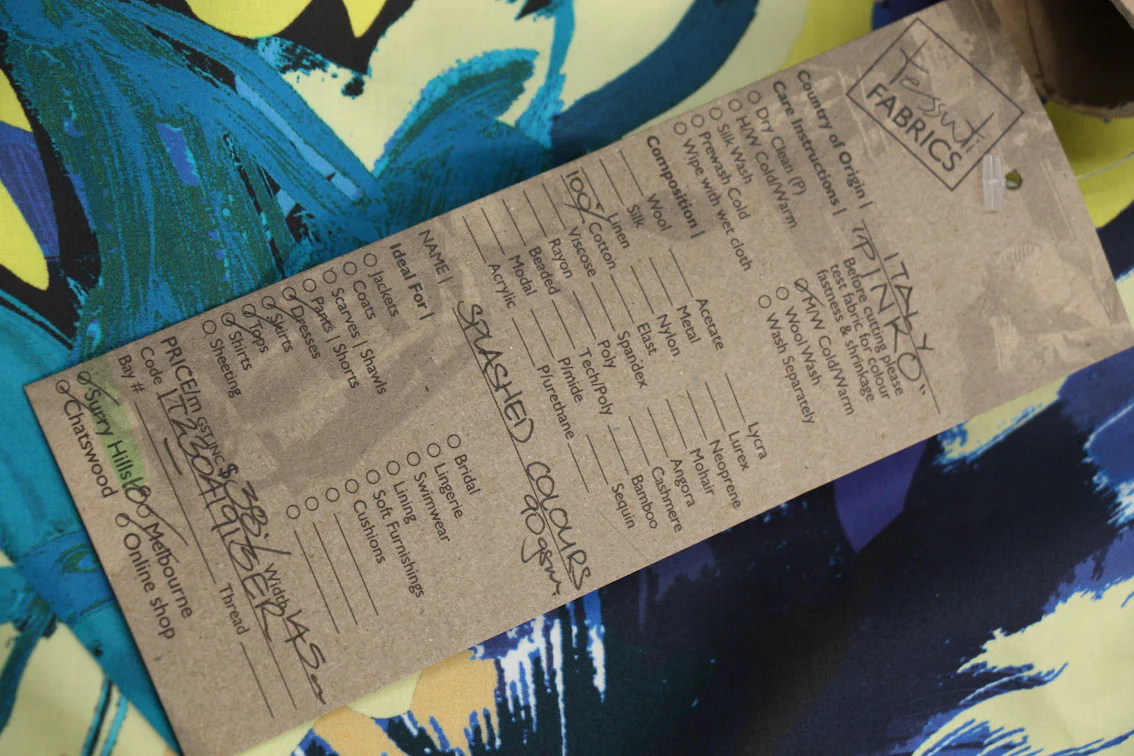 Tessuti
FABRICS
Country of Origin | ITALY
"PINKO"
Care Instructions | Before cutting please
test fabric for colour
fastness & shrinkage
Dry Clean (P)
H/W Cold/Warm
Silk Wash
Prewash Cold
Wipe with wet cloth
M/W Cold/Warm
Wool Wash
Wash Separately
Composition |
Wool
Silk
Linen
100% Cotton
Viscose
Rayon
Beaded
Modal
Acrylic
Acetate
Metal
Nylon
Elast
Spandex
Poly
Tech/Poly
P/mide
P/urethane
Lycra
Lurex
Neoprene
Mohair
Angora
Cashmere
Bamboo
Sequin
NAME | SPLASHED COLOURS
90gsm
Ideal For |
Jackets
Coats
Scarves | Shawls
Pants | Shorts
Dresses
Skirts
Tops
Shirts
Sheeting
Bridal
Lingerie
Swimwear
Lining
Soft Furnishings
Cushions
PRICE/m GST INC $38 Width 145cm
Code
Thread
Bay #
Surry Hills
Melbourne
Chatswood
Online shop